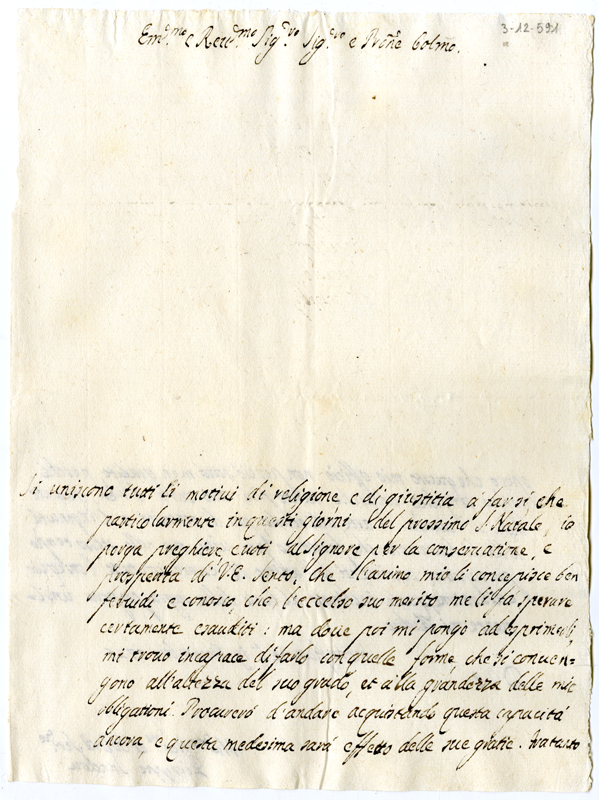 3-12-591
Em.mo e Rev.mo Sig.re Sig.re e Prōne Colmo.
Si uniscono tutti li motiui di religione e di giustitia à far sì, che
particolarmente in questi giorni del prossimo S. Natale, io
porga preghiere, e uoti al Signore per la conseruatione, e
prosperità di V.E. Sento, che l'animo mio li concepisce ben
feruidi, e conosco, che l'eccelso suo merito me li fa sperare
certamente esauditi: ma doue poi mi pongo ad esprimerli,
mi trouo incapace di farlo con quelle forme, che si conuen-
gono all'altezza del suo grado, et alla grandezza delle mie
obligationi. Procurerò d'andare acquistando questa capacità
ancora, e questa medesima sarà effetto delle sue gratie. Tratanto